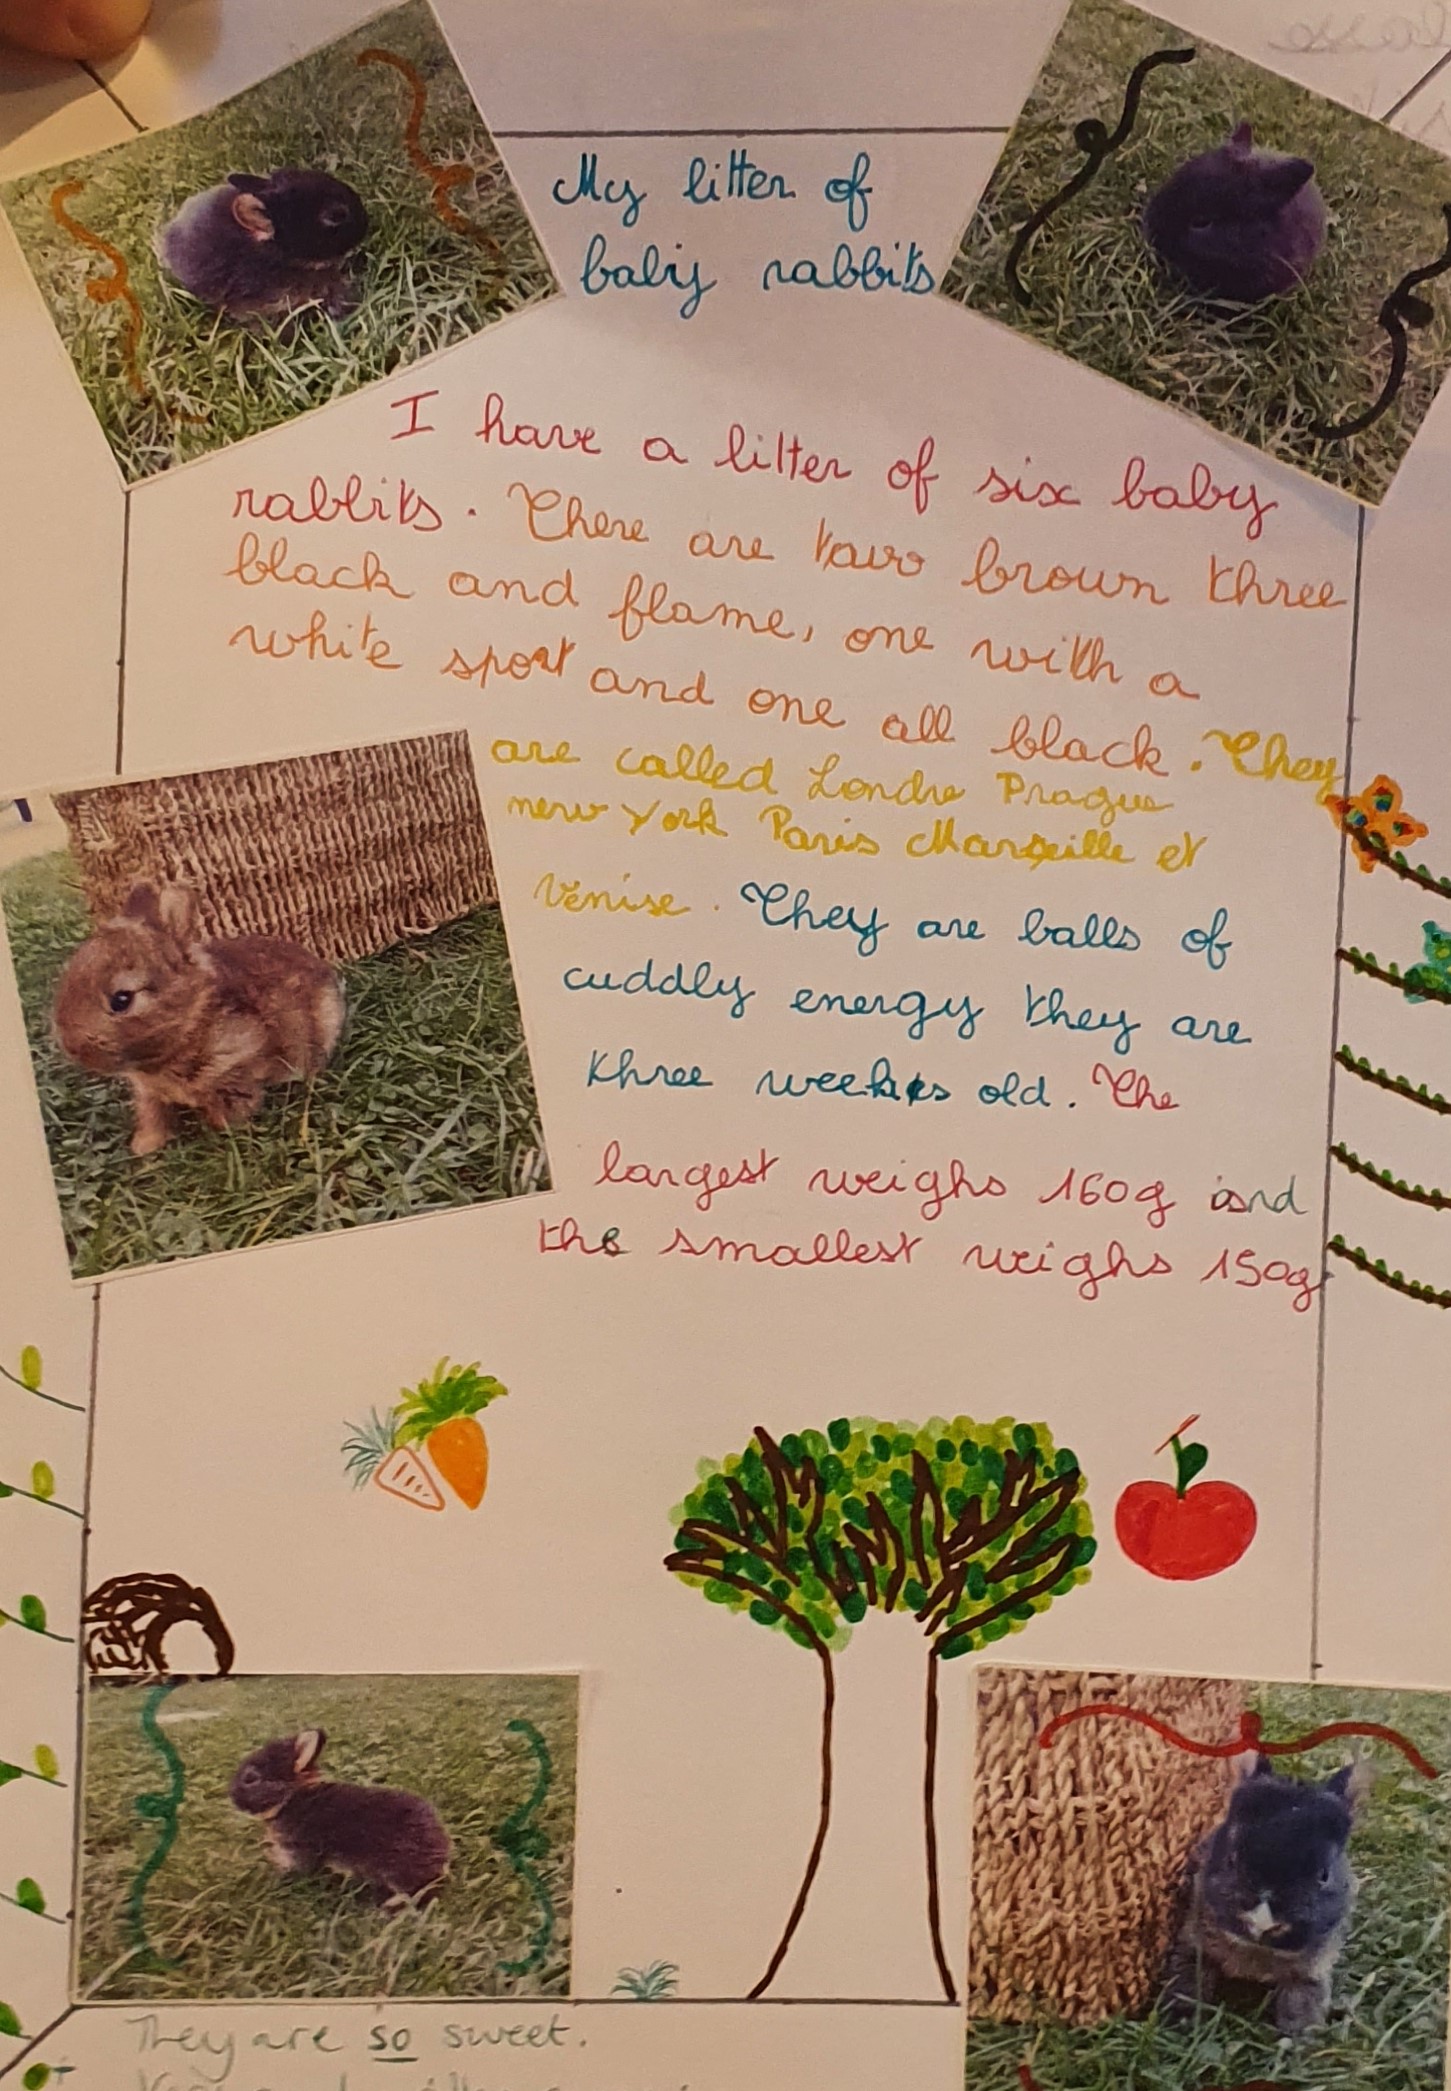 My litter of
baby rabbits
I have a litter of six baby
rabbits. There are two brown three
black and flame, one with a
white spot and one all black. They
are called Londre Prague
new York Paris Marseille et
Venise. They are balls of
cuddly energy they are
three weeks old. The
largest weighs 160g and
the smallest weighs 150g
They are so sweet.